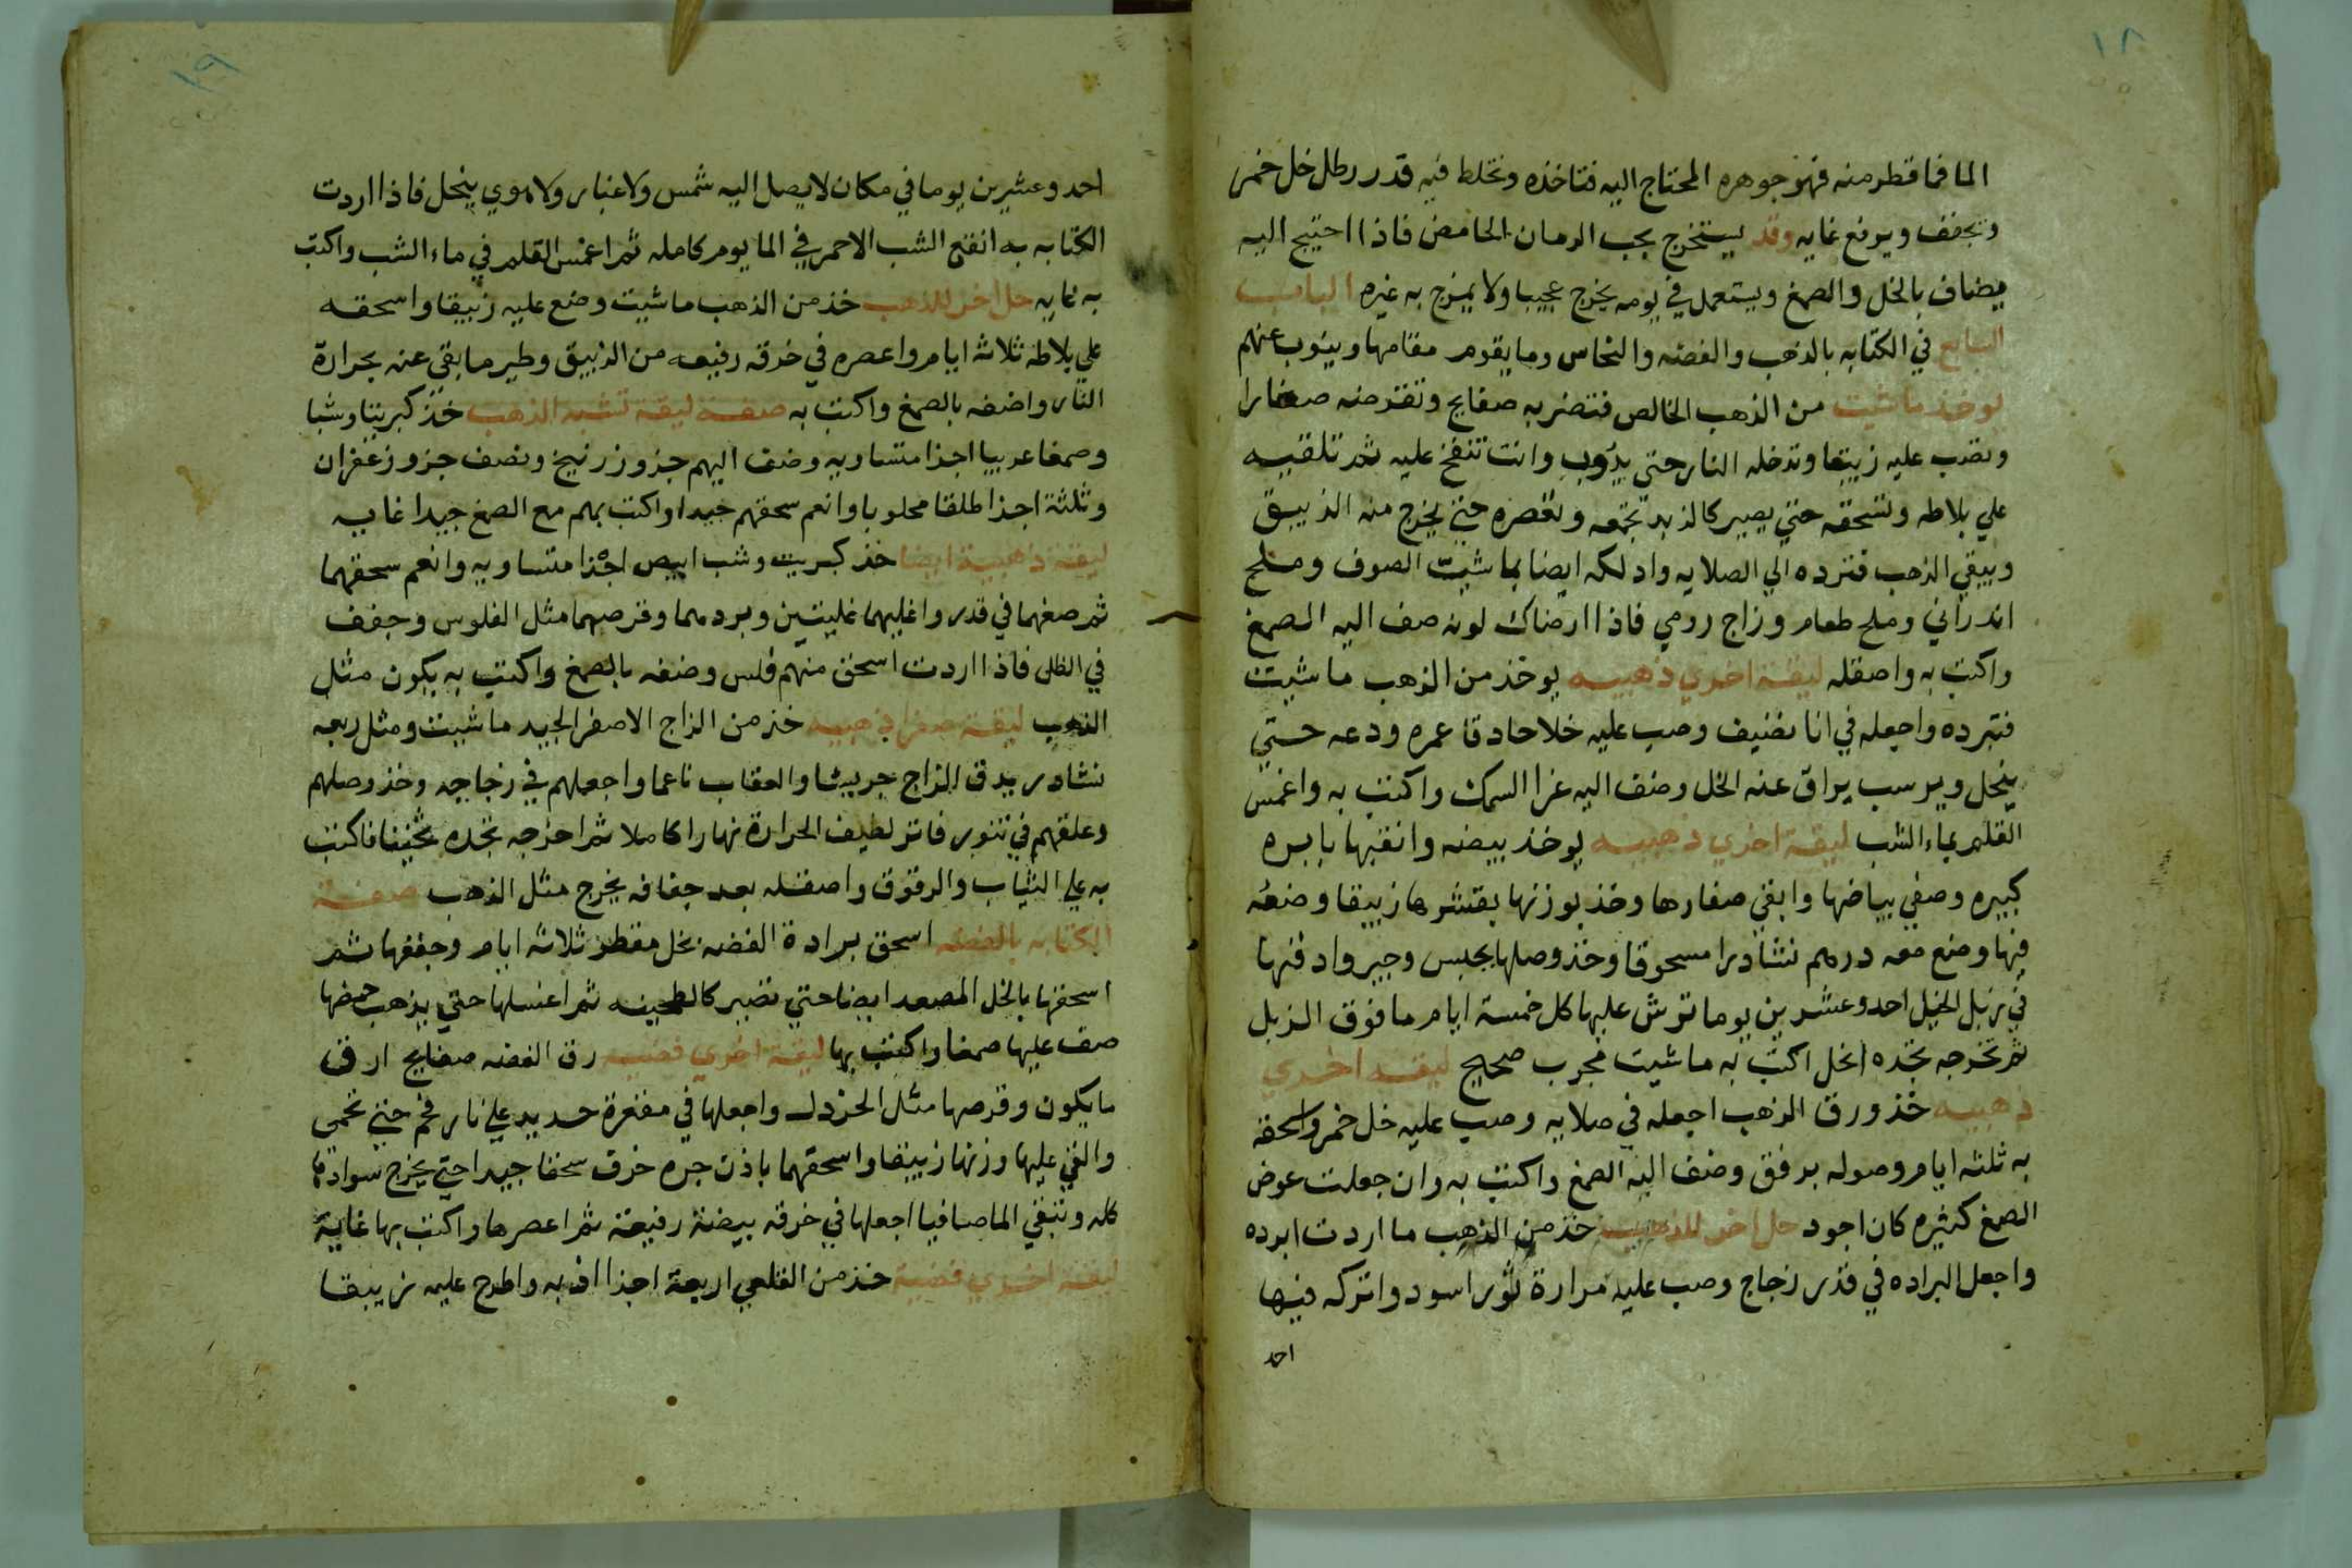 ١٨
الما فما قطر منه فهو جوهره المحتاج اليه فتاخذه وتخلط فيه قدر رطل خل خمر
وتجفف ويرفع غايه وقد يستخرج بحب الرمان الحامض فاذا احتيج اليه
يضاف بالخل والصمغ ويستعمل في يومه يخرج عجيبا ولا يمزج به غيره الباب
السابع في الكتابه بالذهب والفضه والنحاس وما يقوم مقامها وينوب عنهم
يوخذ ما شيت من الذهب الخالص فتضربه صفايح وتقرضه صغارا
وتصب عليه زيبقا وتدخله النار حتي يدوب وانت تنفخ عليه ثم تلقيه
علي بلاطه وتسحقه حتي يصير كالزبد تجمعه وتعصره حتي يخرج منه الزيبق
ويبقي الذهب فترده الي الصلايه وادلكه ايضا بما شيت الصوف وملح
اندراني وملح طعام وزاج رومي فاذا ارضاك لونه صف اليه الصمغ
واكتب به واصقله ليقة اخري ذهبيه يوخذ من الذهب ما شيت
فتبرده واجعله في انا نضيف وصب عليه خلا حادقا غمره ودعه حتي
ينحل ويرسب يراق عنه الخل وضف اليه غرا السمك واكتب به واغمس
القلم بماء الشب ليقة اخري ذهبيه يوخذ بيضه وانقبها بابره
كبيره وصفي بياضها وابقي صفارها وخذ بوزنها بقشرها زيبقا وضعه
فيها وضع معه درهم نشادرا مسحوقا وخذ وصلها بجبس وجير وادفنها
في زبل الخيل احد وعشرين يوما ترش عليها كل خمسة ايام ما فوق الزبل
ثم تخرجه تجده انحل اكتب به ما شيت مجرب صحيح ليقه اخري
ذهبيه خذ ورق الذهب اجعله في صلايه وصب عليه خل خمر واسحقه
به ثلثه ايام وصوله برفق وضف اليه الصمغ واكتب به وان جعلت عوض
الصمغ كثيره كان اجود حل اخر للذهب خذ من الذهب ما اردت ابرده
واجعل البراده في قدر زجاج وصب عليه مرارة ثور اسود واتركه فيها
احد
١٩
احد وعشرين يوما في مكان لا يصل اليه شمس ولا غبار ولا هوي ينحل فاذا اردت
الكتابه به انقع الشب الاحمر في الما يوم كامله ثم اغمس القلم في ماء الشب واكتب
به غايه حل اخر للذهب خذ من الذهب ما شيت وضع عليه زيبقا واسحقه
علي بلاطه ثلاثه ايام واعصره في خرقه رفيعه من الزيبق وطير ما بقي عنه بحرارة
النار واضفه بالصمغ واكتب به صفة ليقة تشبه الذهب خذ كبريتا وشبا
وصمغا عربيا اجزا متساويه وضف اليهم جزو زرنيخ ونصف جزو زعفران
وثلثة اجزا طلقا محلوبا وانعم سحقهم جيدا واكتب بهم مع الصمغ جيدا غايه
ليقة ذهبية ايضا خذ كبريت وشب ابيض اجزا متساويه وانعم سحقهما
ثم صغهما في قدر واغليهما غليتين وبردهما وقرصهما مثل الفلوس وجفف
في الظل فاذا اردت اسحق منهم فلس وضفه بالصمغ واكتب به يكون مثل
الذهب ليقة صفرا ذهبيه خذ من الزاج الاصفر الجيد ما شيت ومثل ربعه
نشادر يدق الزاج جريشا والعقاب ناعما واجعلهم في زجاجه وخذ وصلهم
وعلقهم في تنور فاتر لطيف الحرارة نهارا كاملا ثم اخرجه تجده نجيفا فاكتب
به علي الثياب والرقوق واصقله بعد جفافه يخرج مثل الذهب صفة
الكتابه بالفضه اسحق برادة الفضه بخل مقطر ثلاثه ايام وجففها ثم
اسحقها بالخل المصعد ايضا حتي تصير كالطحينه ثم اغسلها حتي يذهب حمضها
صف عليها صمغا واكتب بها ليقة اخري فضيه رق الفضه صفايح ارق
ما يكون وقرصها مثل الخردل واجعلها في مغرة حديد علي نار فحم حتي تحمي
والقي عليها وزنها زيبقا واسحقهما باذن جره خزف سحقا جيدا حتي يخرج سوادها
كله وتبقي الما صافيا اجعلها في خرقه بيضة رفيعة ثم اعصرها واكتب بها غاية
ليقة اخري فضية خذ من القلعي اربعة اجزا اذبه واطرح عليه زيبقا